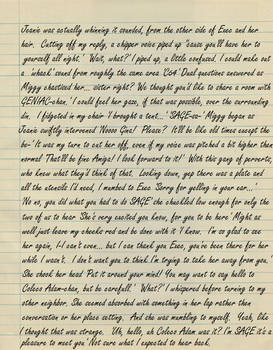 Jeanie was actually whinning it sounded, from the other side of Exec and her
hair. Cutting off my reply, a chipper voice piped up 'cause you'll have her to
yourself all night.' 'Wait, what?' I piped up, a little confused. I could make out
a whack sound from roughly the same area 'C64' Dual questions answered as
Miggy chastized her... sister right? We thought you'd like to share a room with
GENIAC-chan.' I could feel her gaze, if that was possible, over the surrounding
din. I fidgeted in my chair 'I brought a tent...' 'SAGE-sa-' Miggy began as
Jeanie swiftly intervened 'Noooo Gins! Please? It'll be like old times except the
be-' It was my turn to cut her off, even if my voice was pitched a bit higher than
normal 'That'll be fine Amiga! I look forward to it!' With this gang of perverts,
who knew what they'd think of that. Looking down, yep there was a plate and
all the utensils I'd need, I mumbled to Exec 'Sorry for yelling in your ear...'
'No no, you did what you had to do SAGE' she chuckled low enough for only the
two of us to hear 'She's very excited you know, for you to be here' Might as
well just leave my cheeks red and be done with it 'I know. I'm so glad to see
her again, I-I can't even... but I can thank you Exec, you've been there for her
while I wasn't. I don't want you to think I'm trying to take her away from you.'
She shook her head 'Put it around your mind! You may want to say hello to
Coleco Adam-chan, but be carefull.' 'What?' I whispered before turning to my
other neighbor. She seemed absorbed with something in her lap rather then
conversation or her place setting. And she was mumbling to myself. Yeah, like
I thought that was strange. 'Uh, hello, uh Coleco Adam was it? I'm SAGE it's a
pleasure to meet you' Not sure what I expected to hear back.